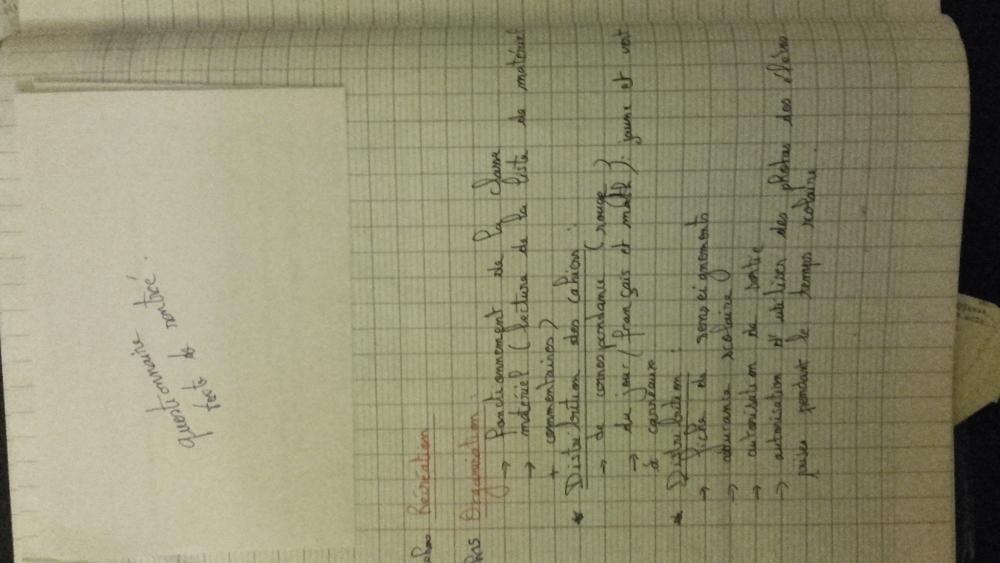 questionnaire
texte de rentrée.
Récréation
Organisation :
→ fonctionnement de la classe
→ matériel (lecture de la liste de matériel
+ commentaires)
* Distribution des cahiers :
→ de correspondance (rouge)
→ du jour (français et math) : jaune et vert
à carreaux
* Distribution :
→ fiche de renseignements
→ assurance scolaire
→ autorisation de sortie
→ autorisation d'utiliser des photos des élèves
prises pendant le temps scolaire.